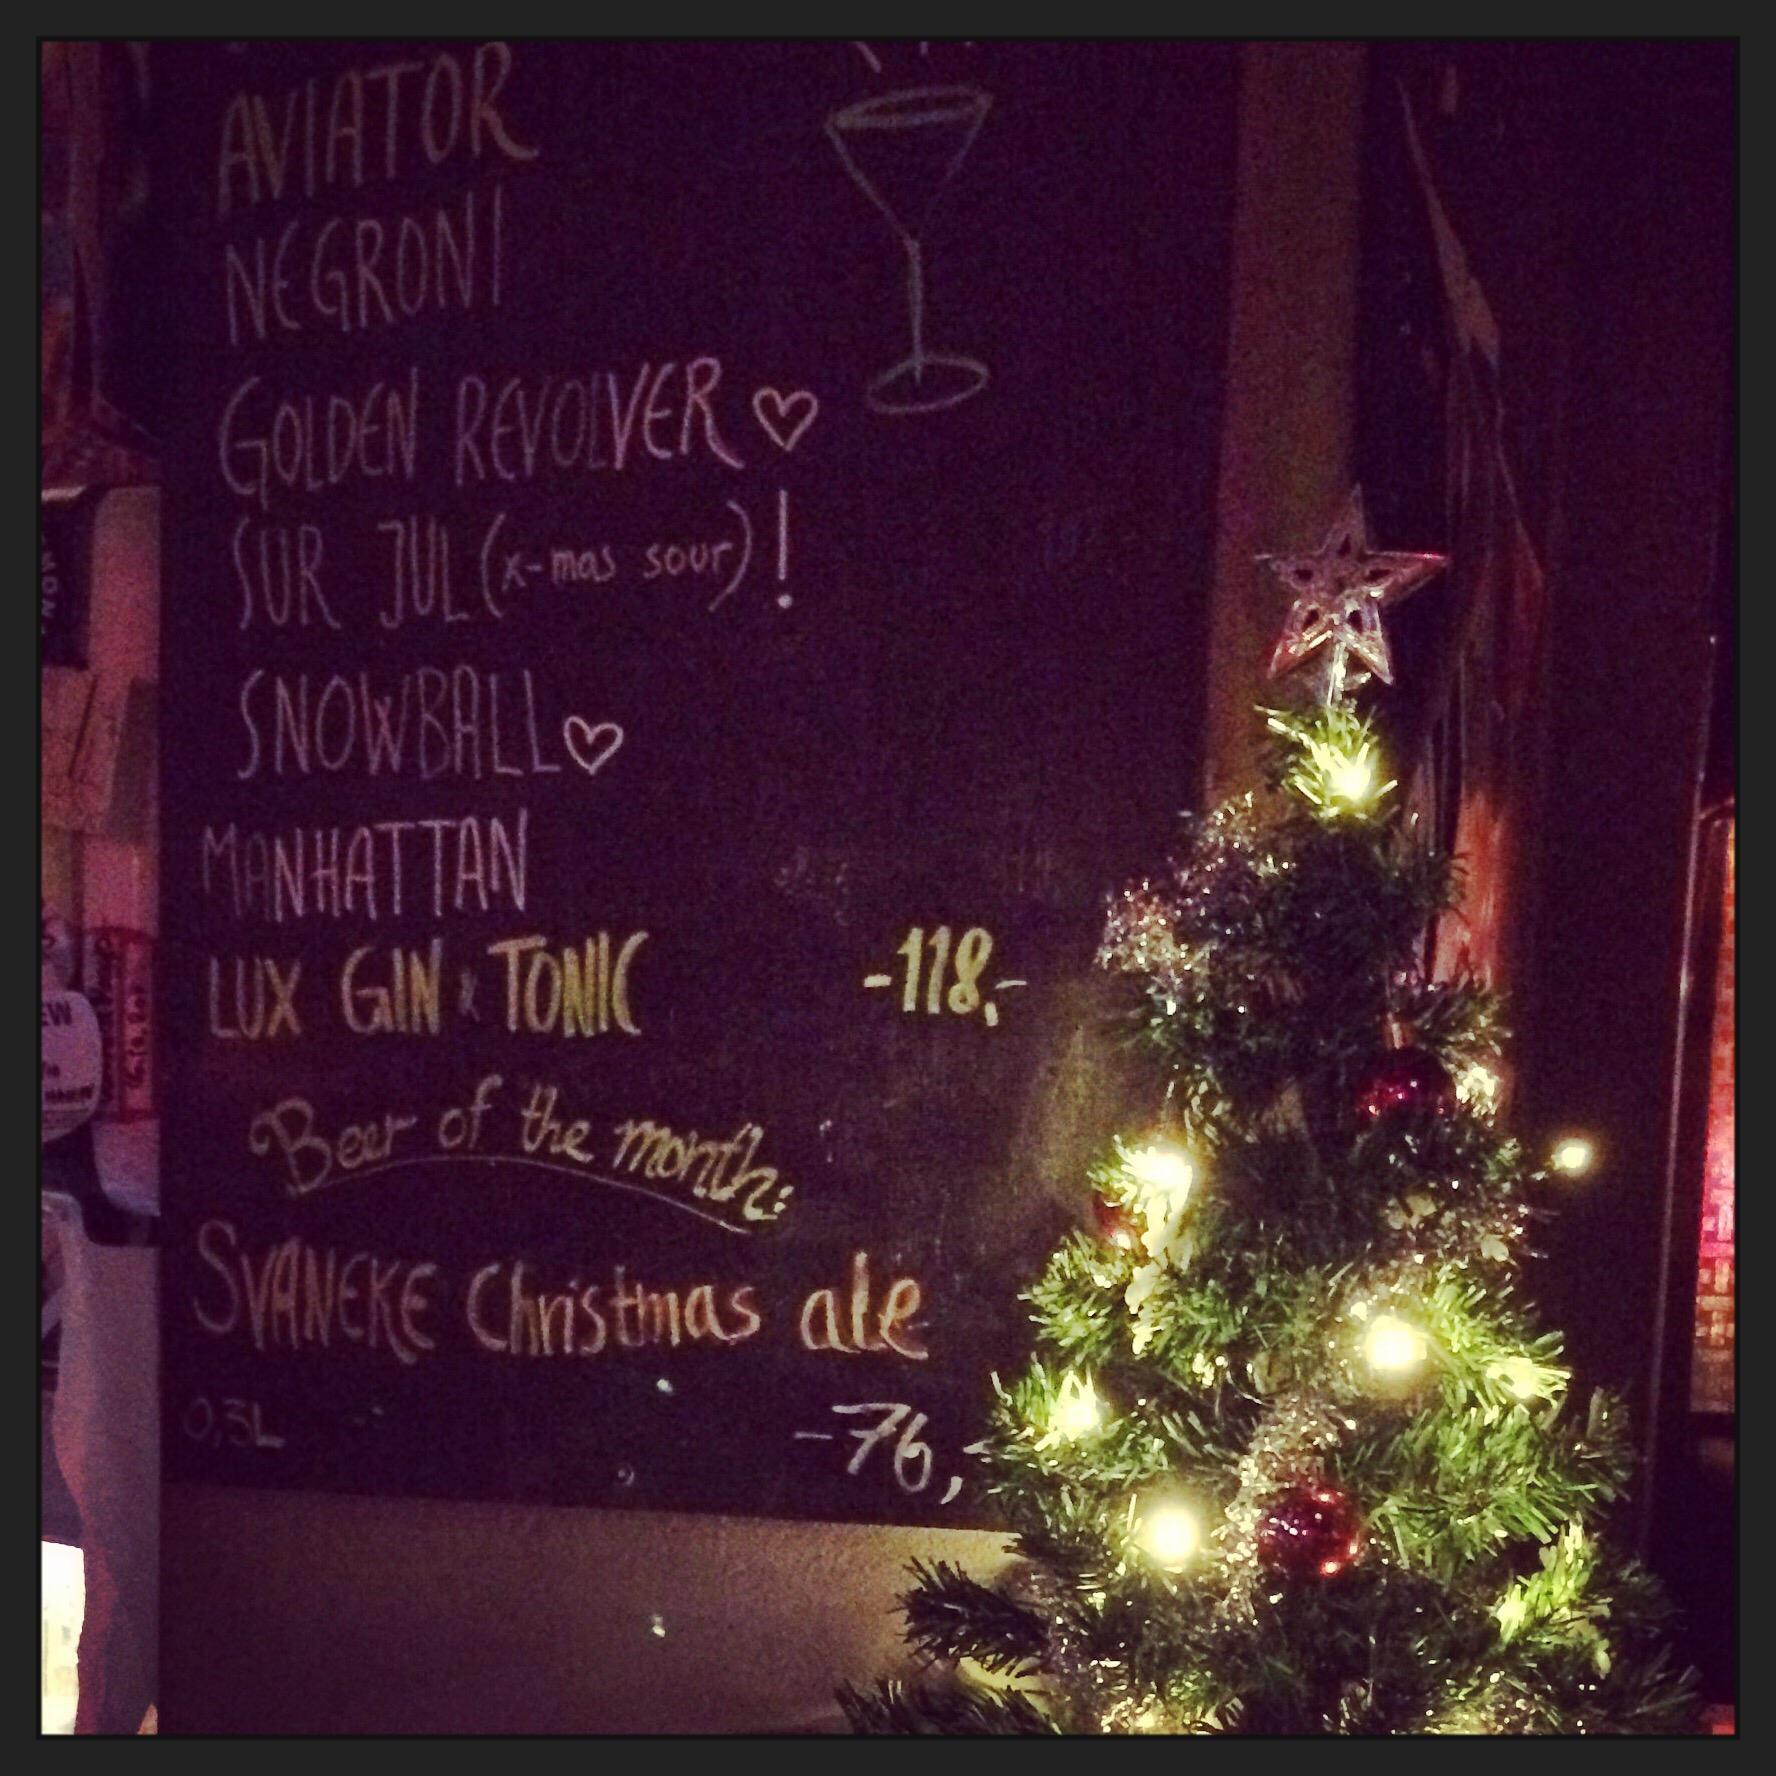 AVIATOR
NEGRONI
GOLDEN REVOLVER ♡
SUR JUL (x-mas sour) !
SNOWBALL ♡
MANHATTAN
LUX GIN & TONIC -118,-
Beer of the month:
SVANEKE Christmas ale
0,3L -76,-